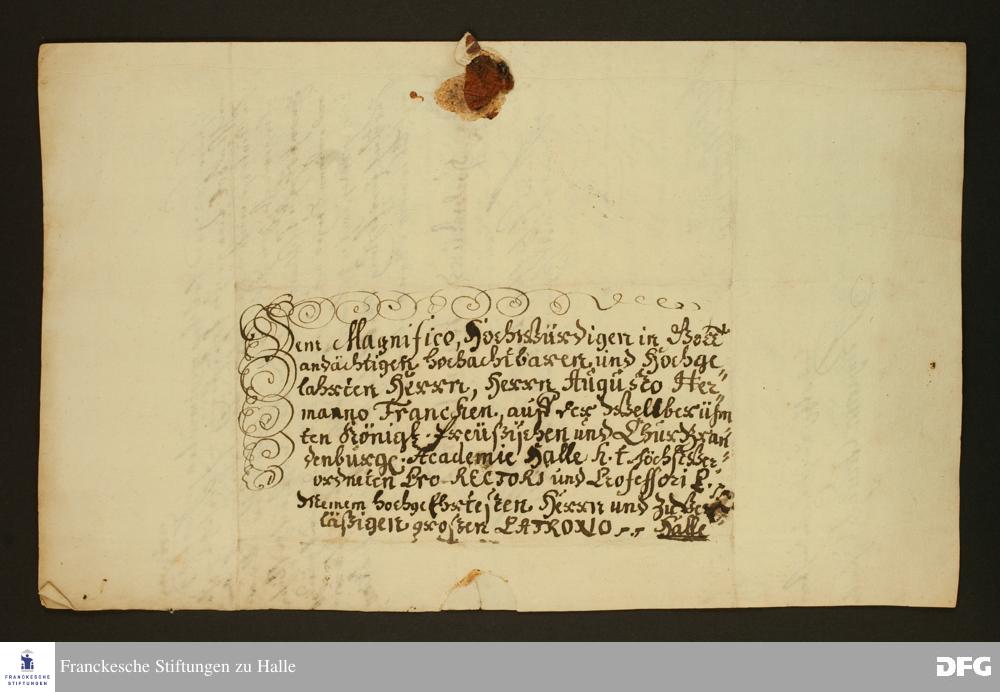 Dem Magnifico, Hochwürdigen in Gott
andächtigen hochachtbaren, und Hochge-
lahrten Herrn, Herrn Augusto Her-
manno Francken, auff der Weltberühm
ten Königl. Preüßischen und Chur Bran
denburg. Academie Halle h. t. höchstver-
ordneten Pro-RECTORI und Professori P.
Meinem hochgeehrtesten Herrn und zuver-
läßigen grossen PATRONO
Halle
Franckesche Stiftungen zu Halle
FRANCKESCHE
STIFTUNGEN
DFG